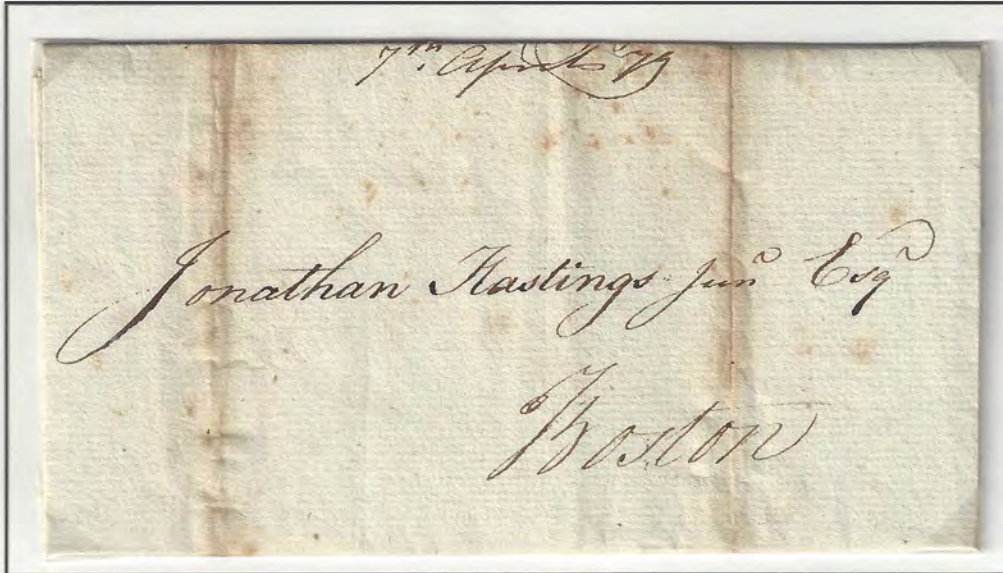 7th. April 79
Jonathan Hastings Junr Esqr
Boston